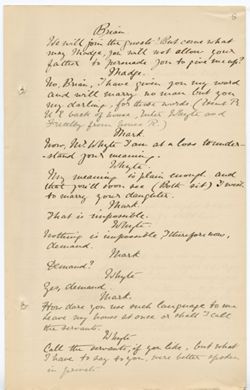 Brian
We will join the guests! But come what
may Madge, you will not allow your
father to persuade you to give me up?
Madge.
No, Brian, I have given you my word
and will marry no man but you
my darling, for those words (Exeunt R
U E back of house, Enter Whyte and
Frettlby from house R.)
Mark.
Now, Mr Whyte I am at a loss to under-
stand your meaning.
Whyte.
My meaning is plain enough and
that you'll soon see (Both sit) I wish
to marry your daughter.
Mark.
That is impossible.
Whyte.
Nothing is impossible I therefore now,
demand.
Mark
Demand?
Whyte
Yes, demand.
Mark.
How dare you use such language to me
leave my house at once or shall I call
the servants.
Whyte
Call the servants, if you like, but what
I have to say to you, were better spoken
in private.